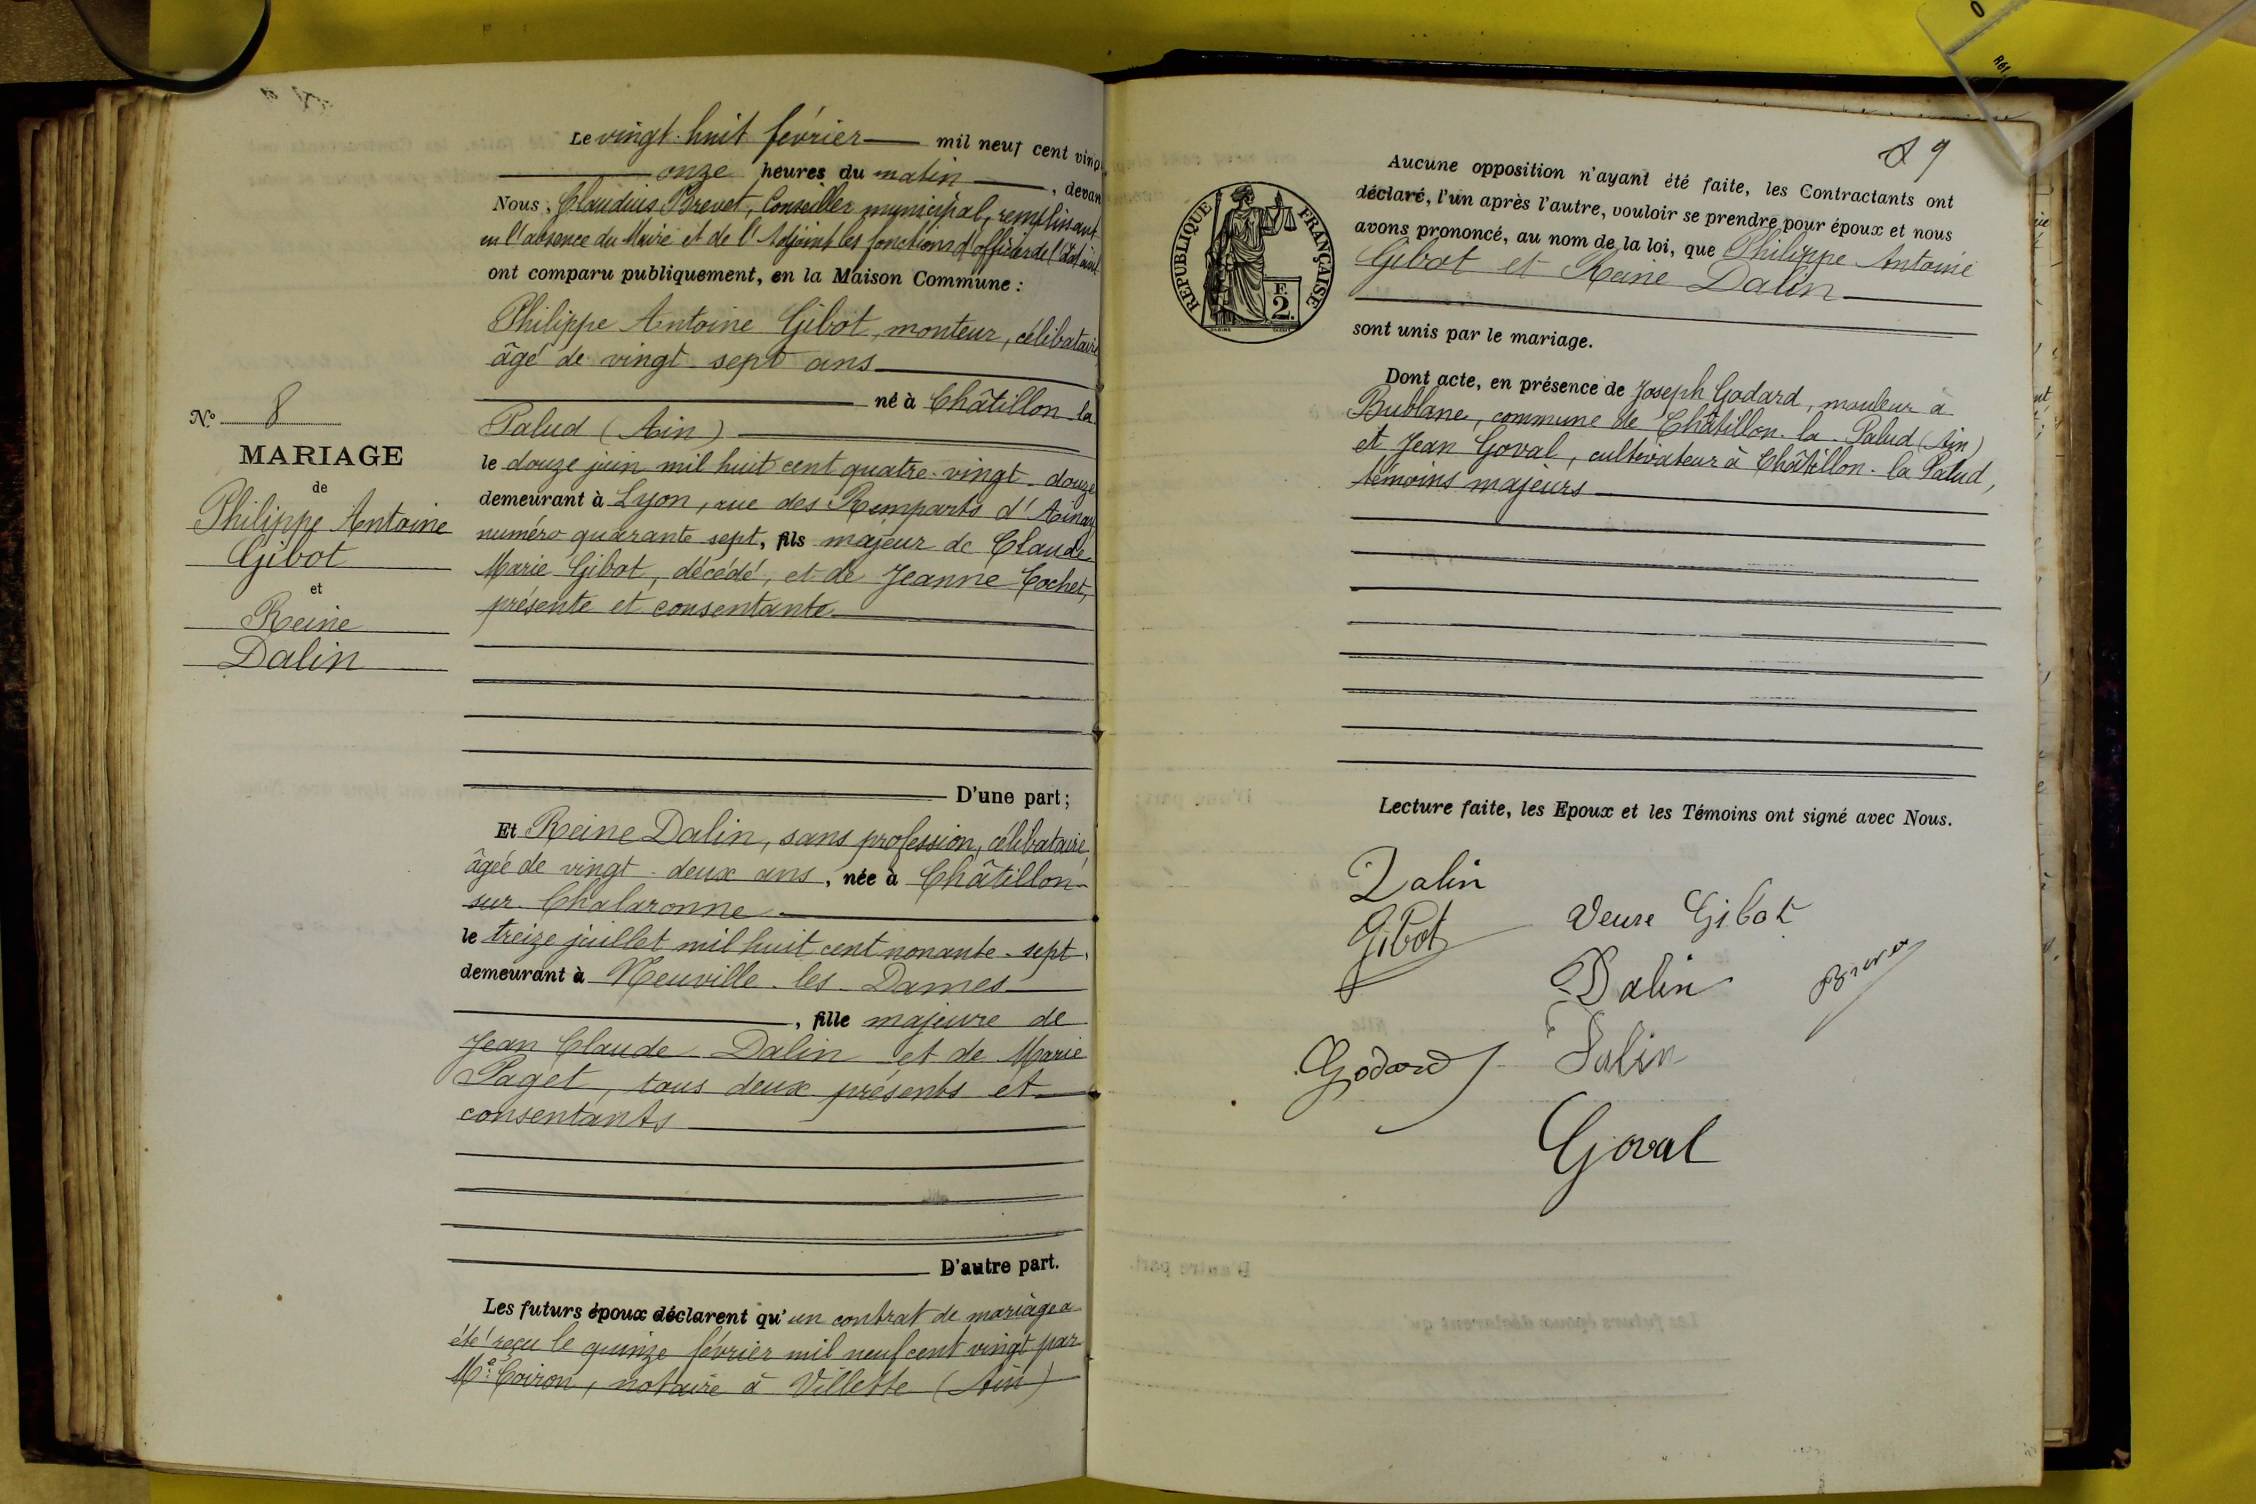 Le vingt-huit février mil neuf cent vingt
onze heures du matin, devan
Nous, Claudius Brevet, Conseiller municipal, remplissant
en l'absence du Maire et de l'Adjoint les fonctions d'officier de l'Etat civil
ont comparu publiquement, en la Maison Commune :
Philippe Antoine Gibot, monteur, célibataire
âgé de vingt-sept ans
né à Châtillon la
Palud (Ain)
le douze juin mil huit cent quatre-vingt-douze
demeurant à Lyon, rue des Remparts d'Ainay
numéro quarante sept, fils majeur de Claude
Marie Gibot, décédé, et de Jeanne Cochet,
présente et consentante
D'une part ;
Nº 8
MARIAGE
de
Philippe Antoine
Gibot
et
Reine
Dalin
Et Reine Dalin, sans profession, célibataire,
âgée de vingt-deux ans, née à Châtillon-
sur-Chalaronne
le treize juillet mil huit cent nonante-sept,
demeurant à Neuville-les-Dames
, fille majeure de
Jean Claude Dalin et de Marie
Paget, tous deux présents et
consentants
D'autre part.
Les futurs époux déclarent qu'un contrat de mariage a
été reçu le quinze février mil neuf cent vingt par
Me Coiron, notaire à Villette (Ain)
89
RÉPUBLIQUE FRANÇAISE
F.
2.
Aucune opposition n'ayant été faite, les Contractants ont
déclaré, l'un après l'autre, vouloir se prendre pour époux et nous
avons prononcé, au nom de la loi, que Philippe Antoine
Gibot et Reine Dalin
sont unis par le mariage.
Dont acte, en présence de Joseph Godard, mouleur à
Bublane, commune de Châtillon-la-Palud (Ain)
et Jean Goval, cultivateur à Châtillon-la Palud,
témoins majeurs
Lecture faite, les Epoux et les Témoins ont signé avec Nous.
Dalin
Gibot
Veuve Gibot
Dalin
Brevet
Godard
Dalin
Goval